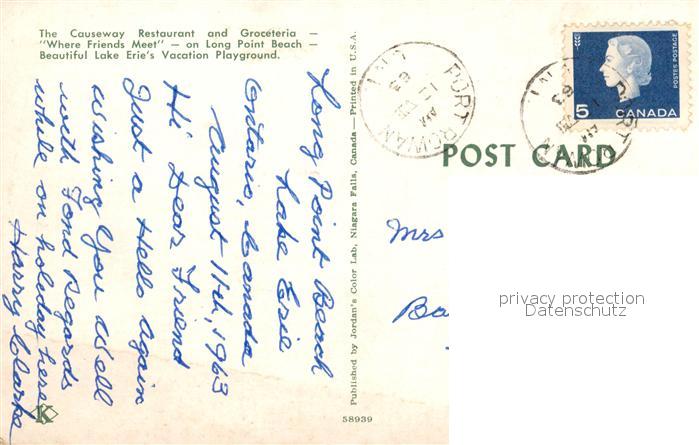 The Causeway Restaurant and Groceteria —
"Where Friends Meet" — on Long Point Beach —
Beautiful Lake Erie's Vacation Playground.
Long Point Beach
Lake Erie
Ontario, Canada
August 11th, 1963
Hi Dear Friend
Just a Hello again
wishing you well
with Fond Regards
while on holiday here
Harry Clarke
K
Published by Jordan's Color Lab, Niagara Falls, Canada — Printed in U.S.A.
58939
PORT ROWAN
ONT
63
POSTES POSTAGE
5
CANADA
POST CARD
Mrs
Ba
privacy protection
Datenschutz